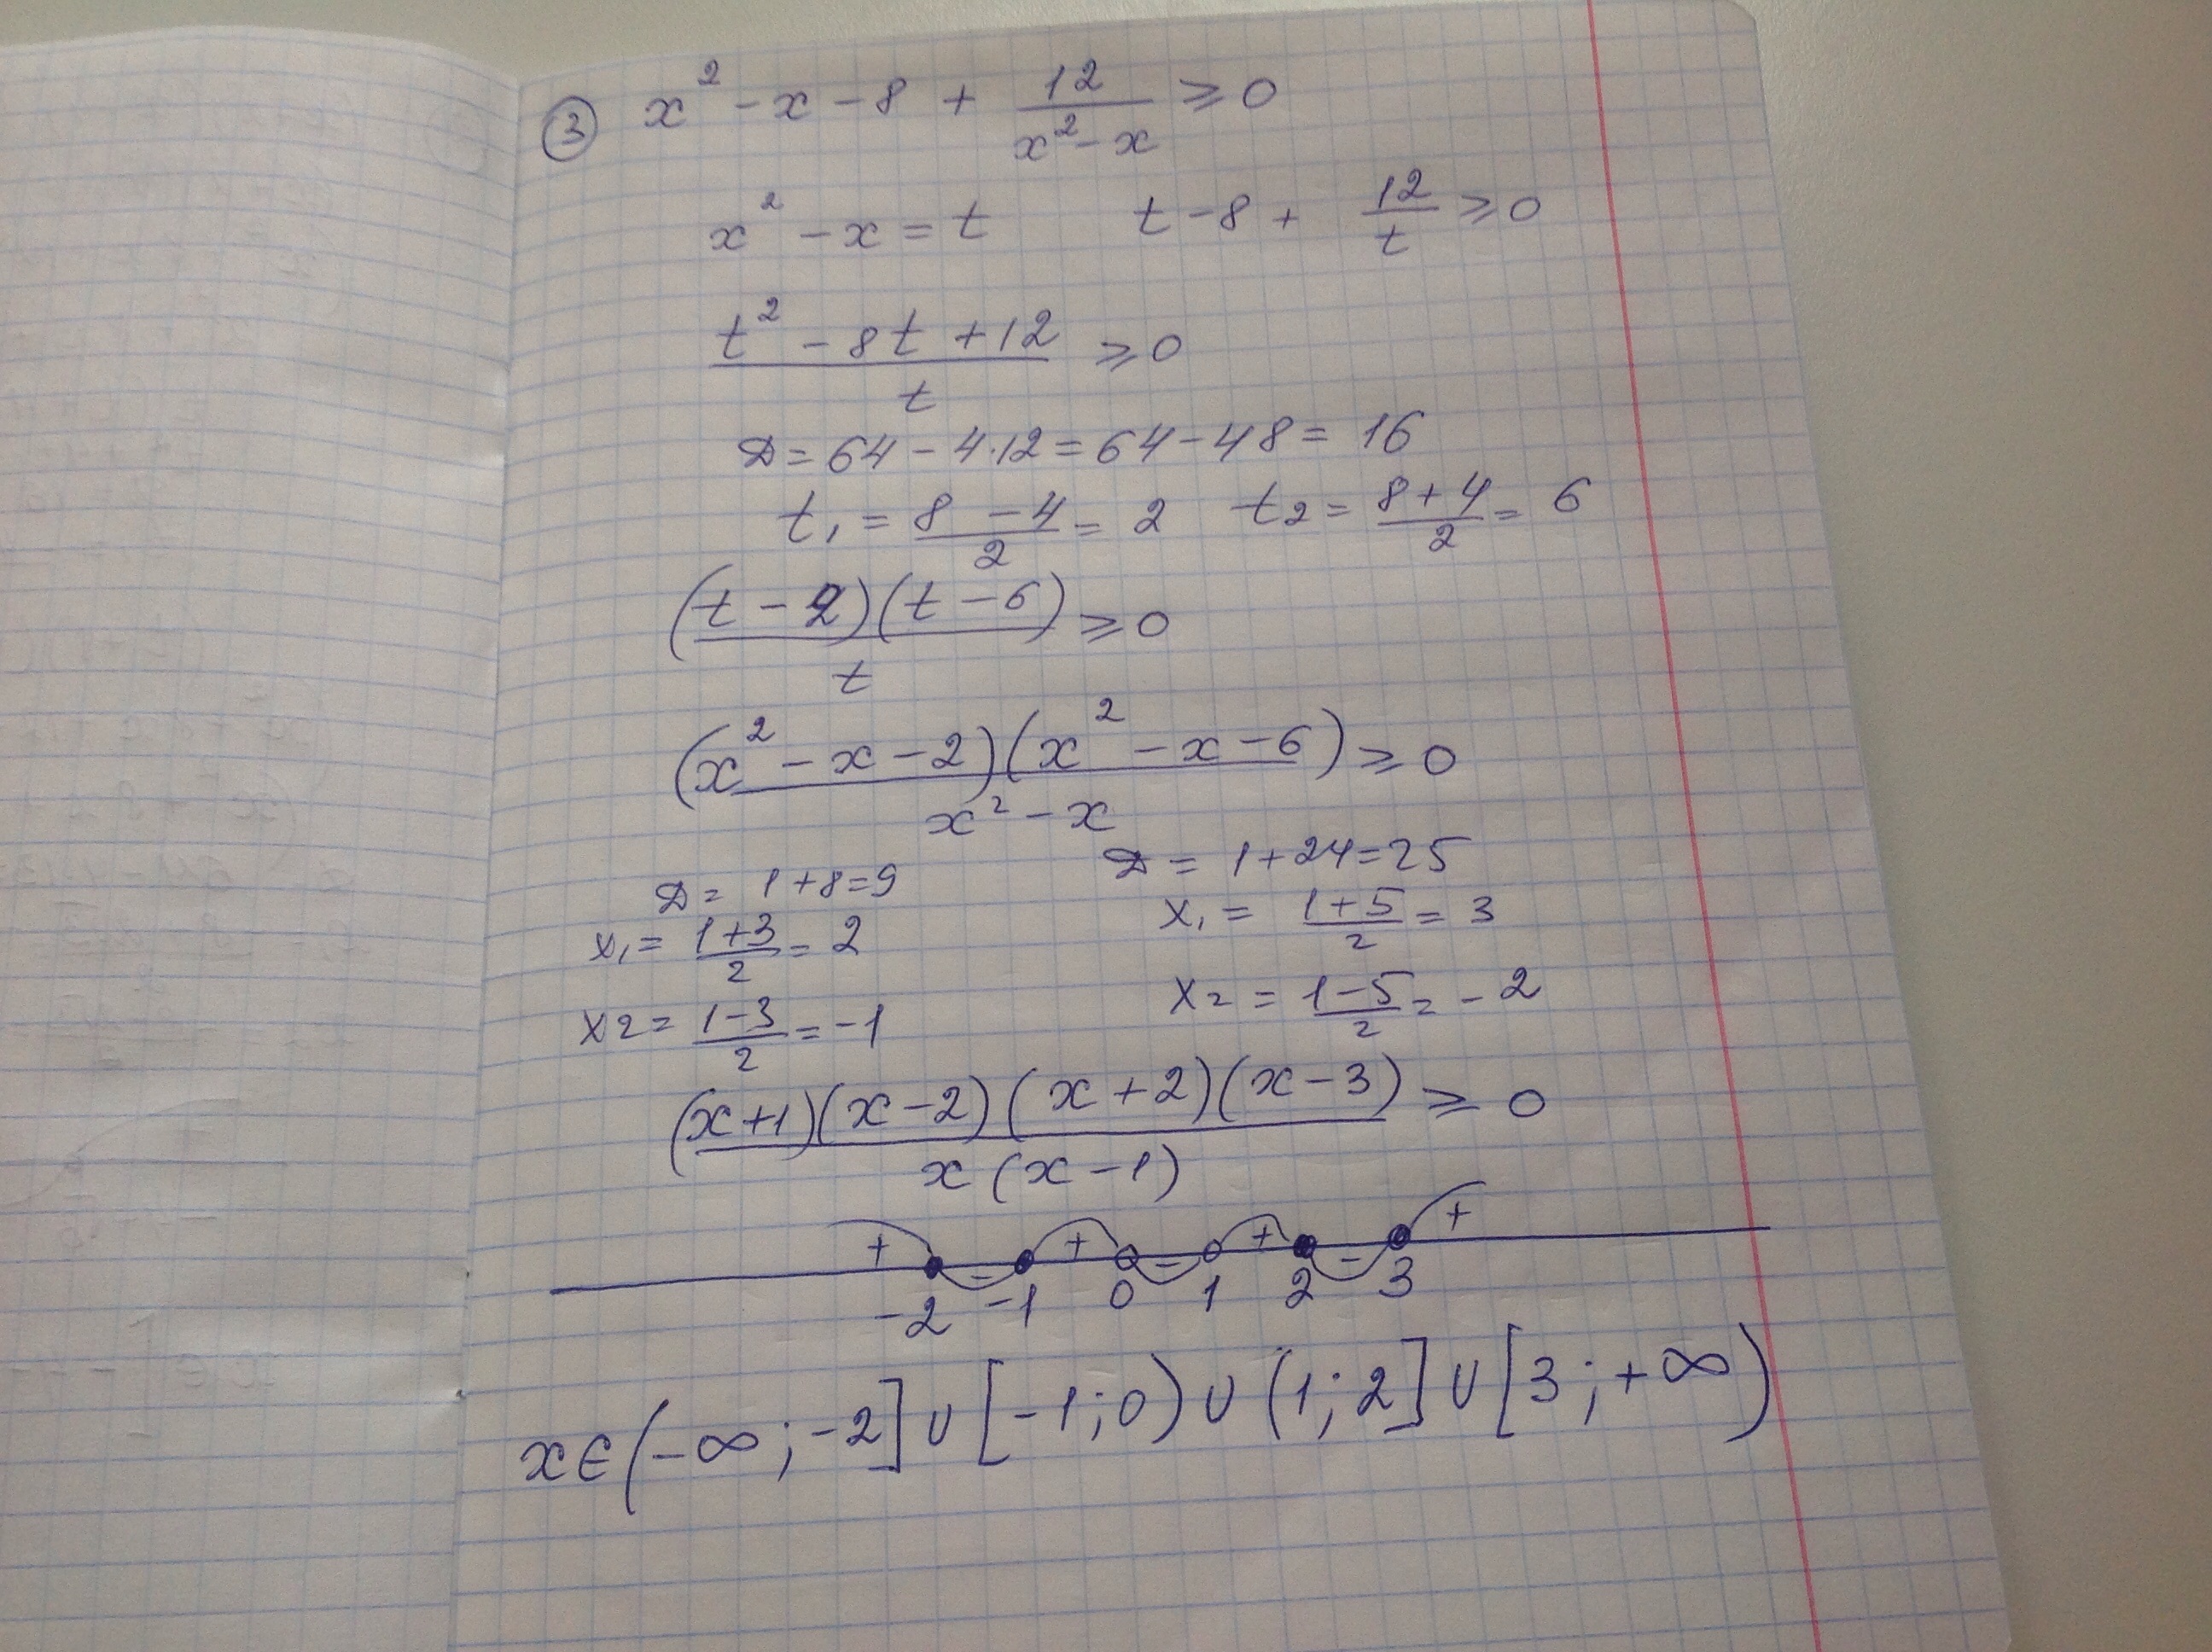 ③ x² - x - 8 + 12/(x² - x) ≥ 0
x² - x = t    t - 8 + 12/t ≥ 0
(t² - 8t + 12)/t ≥ 0
D = 64 - 4·12 = 64 - 48 = 16
t₁ = (8 - 4)/2 = 2    t₂ = (8 + 4)/2 = 6
(t - 2)(t - 6)/t ≥ 0
(x² - x - 2)(x² - x - 6)/(x² - x) ≥ 0
D = 1 + 8 = 9    D = 1 + 24 = 25
x₁ = (1 + 3)/2 = 2    x₁ = (1 + 5)/2 = 3
x₂ = (1 - 3)/2 = -1    x₂ = (1 - 5)/2 = -2
(x + 1)(x - 2)(x + 2)(x - 3)/(x(x - 1)) ≥ 0
+ - + - + - +
-2 -1 0 1 2 3
x ∈ (-∞; -2] ∪ [-1; 0) ∪ (1; 2] ∪ [3; +∞)